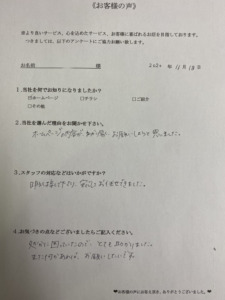 《お客様の声》
より良いサービス、心を込めたサービス、お客様に喜ばれるお店を目指しております。
つきましては、以下のアンケートにご協力お願い致します。
お名前 様
年 11月18日
1.当社を何でお知りになりましたか?
☑ホームページ □チラシ □ご紹介
□その他
2.当社を選んだ理由をお聞かせ下さい。
ホームページの内容が
お願いしようと思いました。
3.スタッフの対応などはいかがですか?
安心しておまかせできました。
4.お気づきの点などございましたらご記入ください。
困っていたので、とても助かりました。
また何かあれば、お願いしたいです。
♥お客様の声にお答え頂き、ありがとうございました。♥